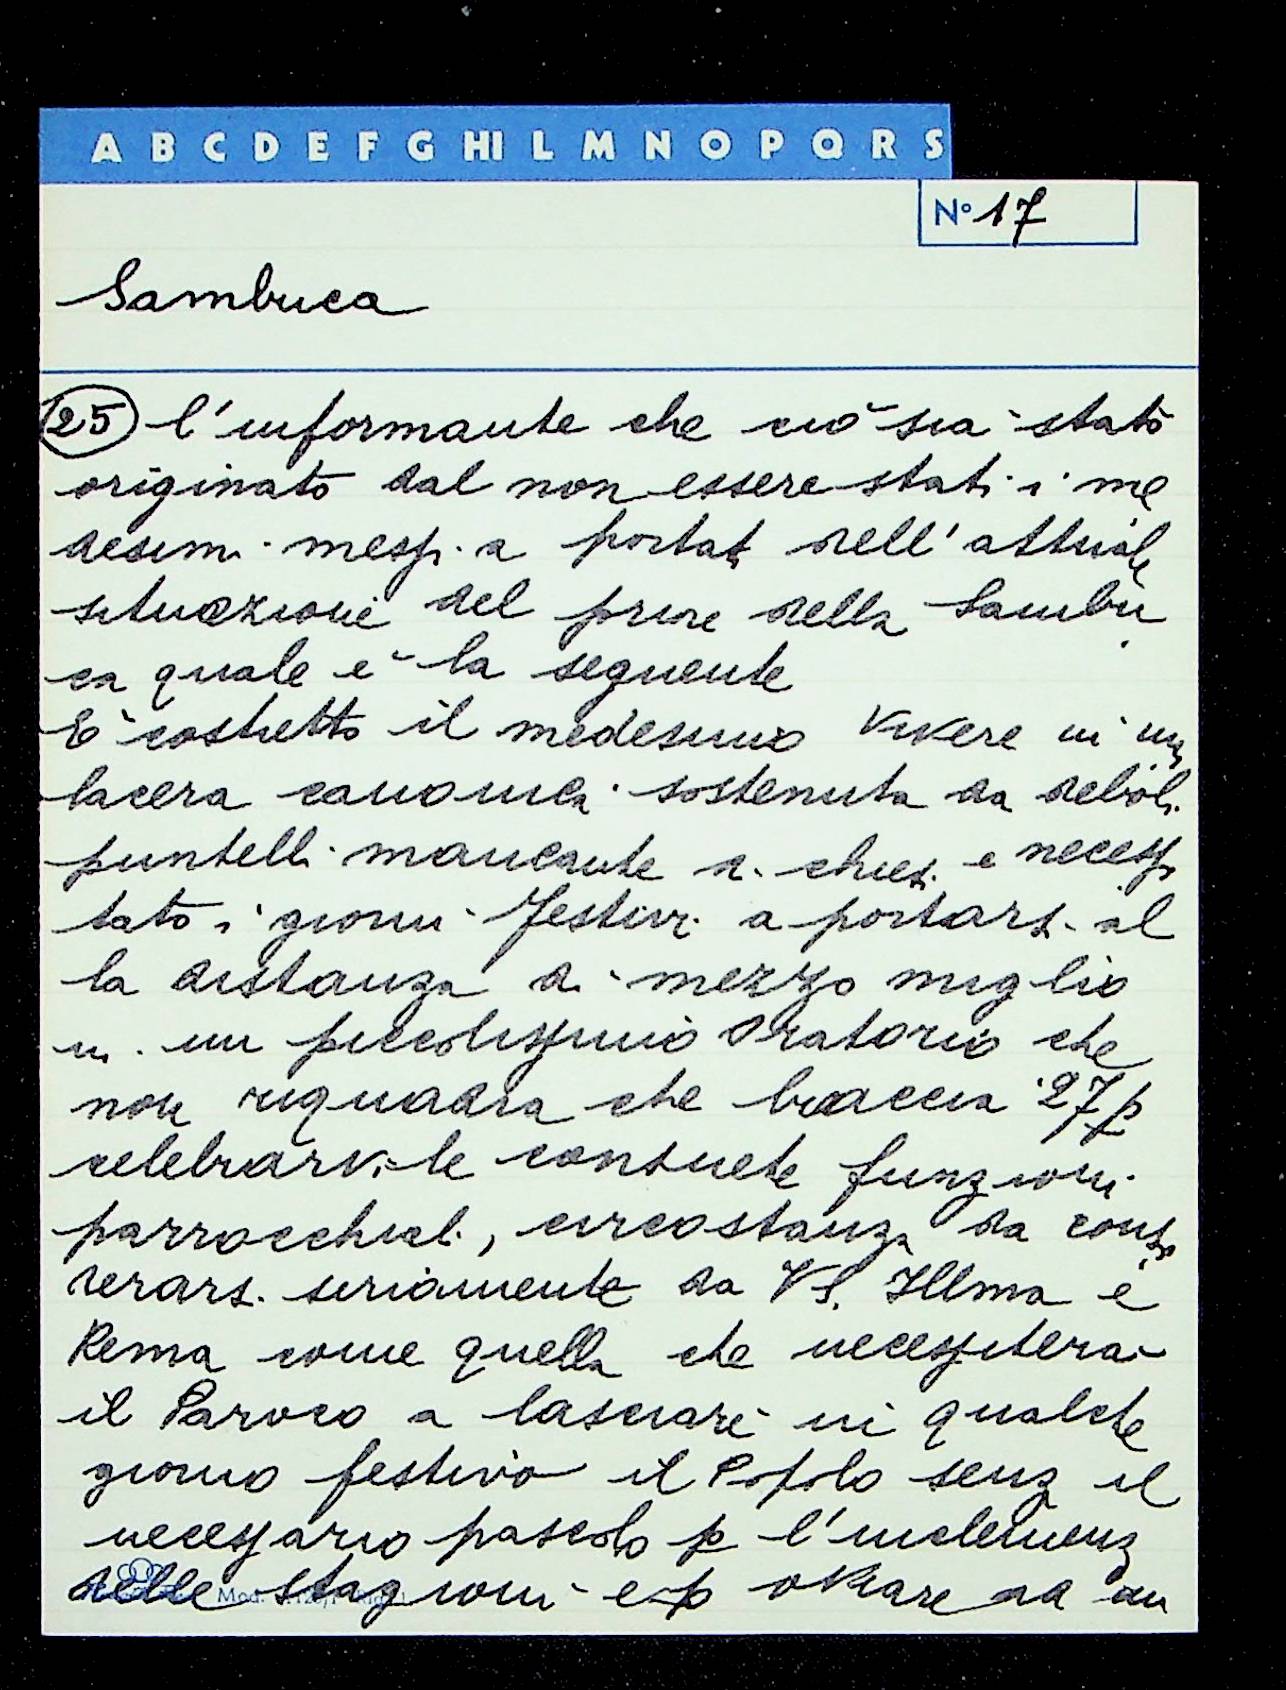 A B C D E F G HI L M N O P Q R S
N° 17
Sambuca
25 l'informante che ciò sia stato
originato dal non essere stati i me
desimi messi a portat dell'attuale
situazione del priore della Sambu
ca quale è la seguente
E' costretto il medesimo vivere in un
lacera canonica sostenuta da deboli
puntelli mancante di chiesa e necessi
tato i giorni festivi a portarsi al
la distanza di mezzo miglio
in un piccolissimo Oratorio che
non riquadra che braccia 27 p
celebrarvi le consuete funzioni
parrocchiali, circostanza da consi
derarsi seriamente da VS. Illma e
Rema come quella che necessiterà
il Paroco a lasciare in qualche
giorno festivo il Popolo senz il
necessario pascolo p l'inclemenz
delle stagioni e p ovviare ad un
Mod.